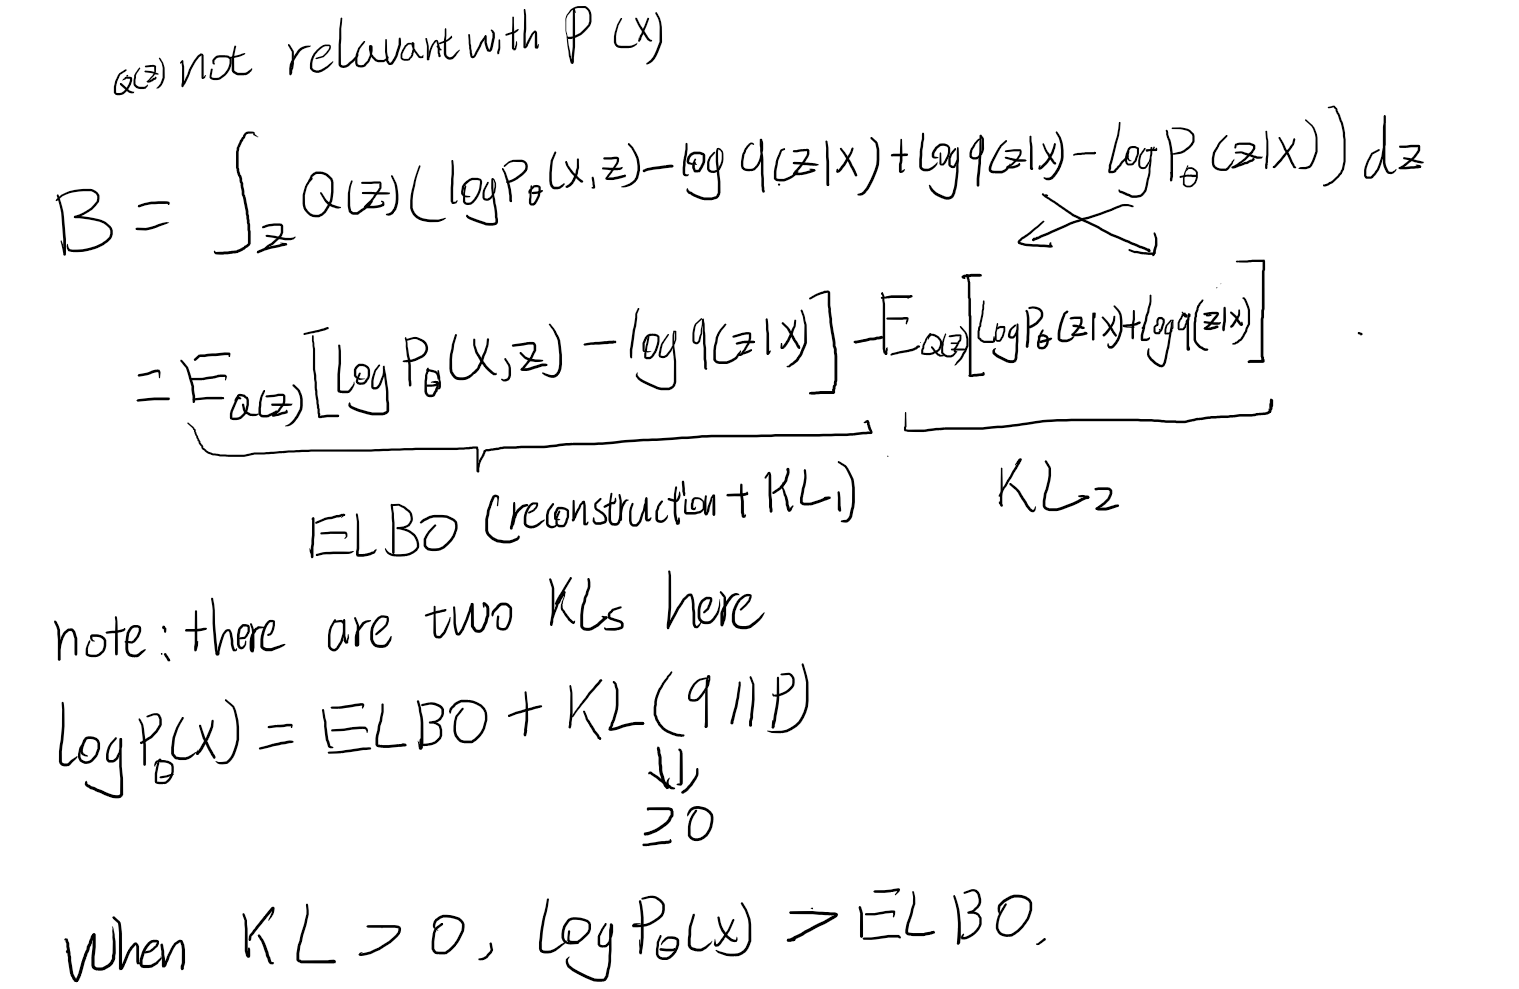 Q(z) not relavant with P(x)
B = ∫_z Q(z)(log P_θ(x,z) - log q(z|x) + log q(z|x) - log P_θ(z|x)) dz
= E_Q(z) [log P_θ(x,z) - log q(z|x)] - E_Q(z) [log P_θ(z|x) + log q(z|x)]
ELBO (reconstruction + KL_1) KL_2
note: there are two KLs here
log P_θ(x) = ELBO + KL(q || P)
≥0
When KL > 0, log P_θ(x) > ELBO.